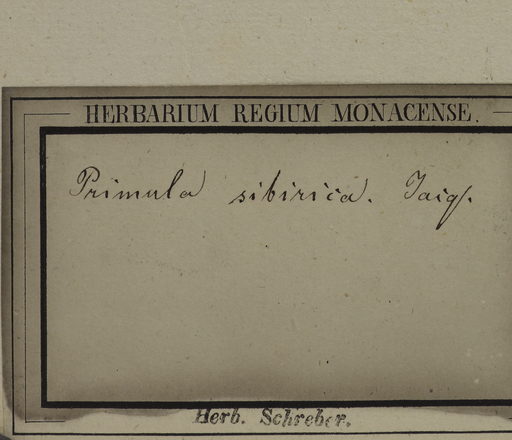 HERBARIUM REGIUM MONACENSE.
Primula sibirica. Jacq.
Herb. Schreber.